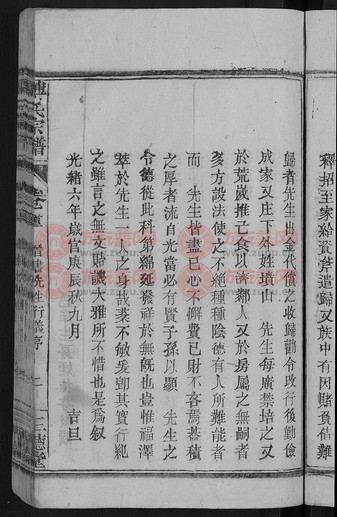 釋招至家給資斧遣歸又族中有因賭負債難
歸者先生出金代償之收歸勸令改行後勤儉
成家又庄下外姓墳山 先生每廣禁培之又
於荒歲推己食以濟鄰人又於房屬之無嗣者
多方設法使之不絕種種陰德有人所難能者
而 先生皆盡己心不懈費己財不吝焉蓄積
之厚者流自光當必有賢子孫以顯 先生之
令德從此科第綿延發祥於無旣也豈惟福澤
萃於先生一人之身哉菉不敏爰卽其實行紀
之雖言之無文貽譏大雅所不惜也是為叙
光緒六年歲官庚辰秋九月 吉旦
氏宗譜
先生行義序
二
三德堂